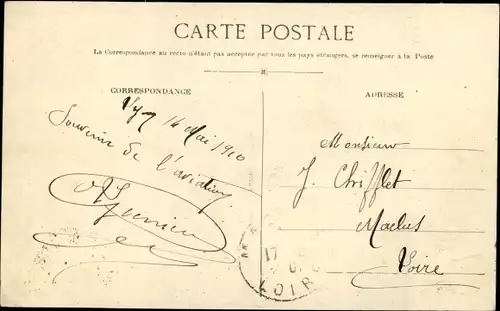 CARTE POSTALE
La Correspondance au recto n'étant pas acceptée par tous les pays étrangers, se renseigner à la Poste
CORRESPONDANCE
ADRESSE
14 Mai 1910
Souvenir de l'aviation
Monsieur
J. Chifflet
Maclas
Loire
17
LOIR